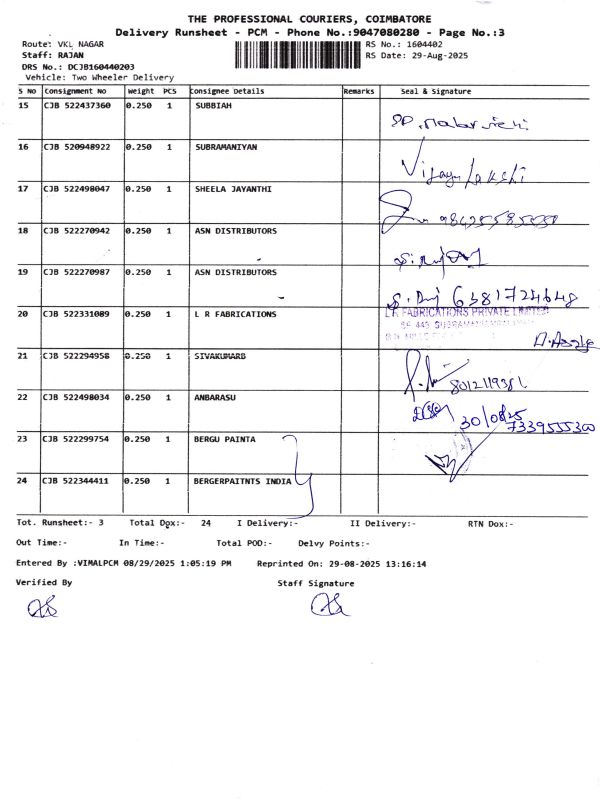 THE PROFESSIONAL COURIERS, COIMBATORE
Delivery Runsheet - PCM - Phone No.:9047080280 - Page No.:3
Route: VKL NAGAR RS No.: 1604402
Staff: RAJAN RS Date: 29-Aug-2025
DRS No.: DCJB160440203
Vehicle: Two Wheeler Delivery
S No Consignment No Weight PCS Consignee Details Remarks Seal & Signature
15 CJB 522437360 0.250 1 SUBBIAH
16 CJB 520948922 0.250 1 SUBRAMANIYAN
17 CJB 522498047 0.250 1 SHEELA JAYANTHI
18 CJB 522270942 0.250 1 ASN DISTRIBUTORS
19 CJB 522270987 0.250 1 ASN DISTRIBUTORS
6381724648
20 CJB 522331089 0.250 1 L R FABRICATIONS
L R FABRICATIONS PRIVATE LIMITED
21 CJB 522294958 0.250 1 SIVAKUMARB
22 CJB 522498034 0.250 1 ANBARASU
30/08/25
7339555300
23 CJB 522299754 0.250 1 BERGU PAINTA
24 CJB 522344411 0.250 1 BERGERPAITNTS INDIA
Tot. Runsheet:- 3 Total Dox:- 24 I Delivery:- II Delivery:- RTN Dox:-
Out Time:- In Time:- Total POD:- Delvy Points:-
Entered By :VIMALPCM 08/29/2025 1:05:19 PM Reprinted On: 29-08-2025 13:16:14
Verified By Staff Signature